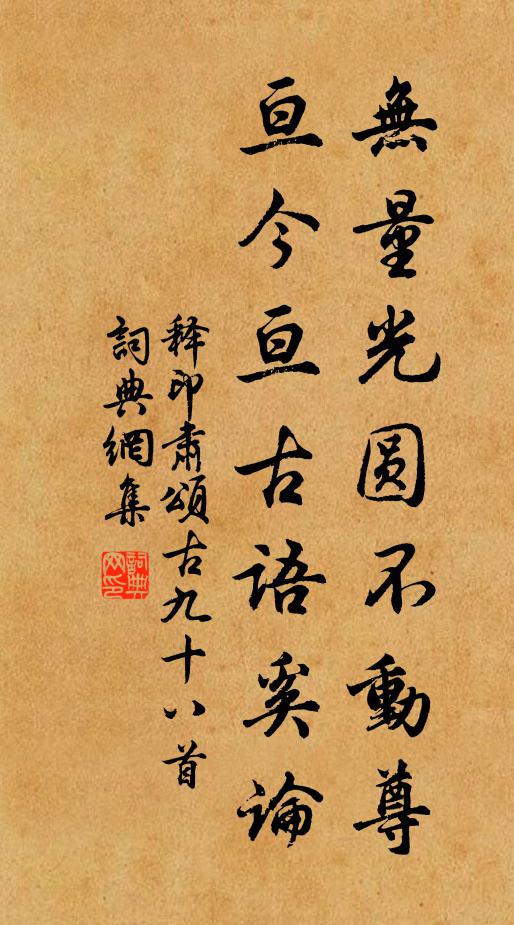 無量光圓不動尊
亘今亘古語奚論
释印肅頌古九十八首
詞典網集
詞典网印